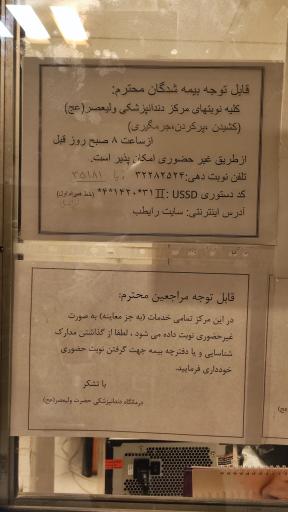 قابل توجه بیمه شدگان محترم:
کلیه نوبتهای مرکز دندانپزشکی ولیعصر(عج)
(کشیدن ،پرکردن،جرمگیری)
ازساعت ۸ صبح روز قبل
ازطریق غیر حضوری امکان پذیر است.
تلفن نوبت دهی:۳۲۲۸۲۵۲۴ یا ۳۵۱۸۱
کد دستوری USSD :
آدرس اینترنتی: سایت رایطب
قابل توجه مراجعین محترم:
در این مرکز تمامی خدمات (به جز معاینه) به صورت
غیرحضوری نوبت داده می شود ، لطفا از گذاشتن مدارک
شناسایی و یا دفترچه بیمه جهت گرفتن نوبت حضوری
خودداری فرمایید.
با تشکر
درمانگاه دندانپزشکی حضرت ولیعصر(عج)